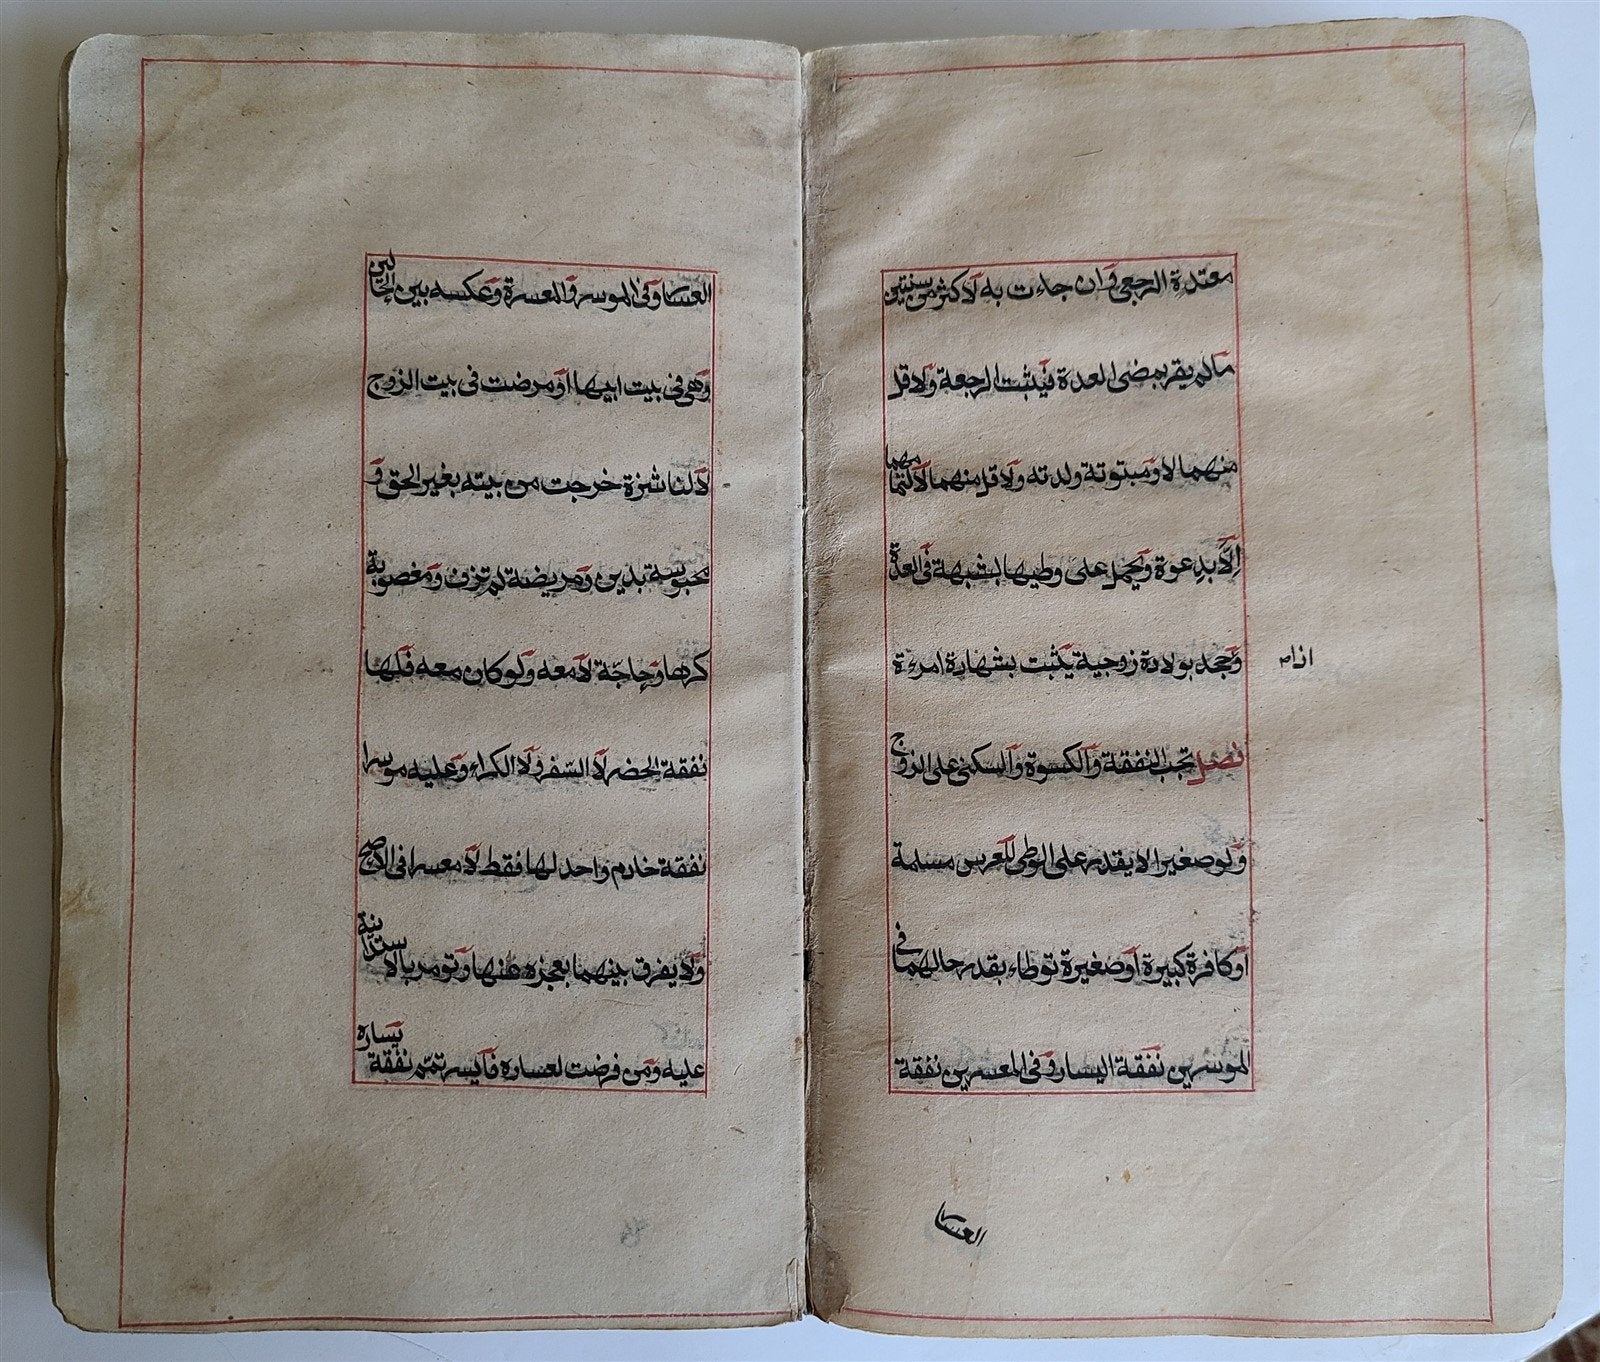 معتدة الرجعى وان جاءت به لاكثر من سنتين
مالم يقر بمضى العدة فيثبت الرجعة ولاقل
منهما لا ومبتوتة ولدته ولاقل منهما لا لتمامهما
الا بدعوة ويحمل على وطيها بشبهة فى العدة
وجحد بولادة زوجية يثبت بشهادة امرءة
فصل تجب النفقة والكسوة والسكنى على الزوج
ولو صغيرا لا يقدر على الوطى للعرس مسلمة
او كافرة كبيرة او صغيرة توطاء بقدر حالهما فى
الموسرين نفقة اليسار وفى المعسرين نفقة
العسار
العسار وفى الموسر والمعسرة وعكسه بين الحالين
وهى فى بيت ابيها او مرضت فى بيت الزوج
لا لناشزة خرجت من بيته بغير الحق و
محبوسة بدين ومريضة لم تزف ومغصوبة
كرها وحاجة لا معه ولو كان معه فلها
نفقة الحضر لا السفر ولا الكراء وعليه موسرا
نفقة خادم واحد لها فقط لا معسرا فى الاصح
ولا يفرق بينهما بعجزه عنها وتومر بالاستدانة
عليه ومن فرضت لعساره فايسر تمم نفقة يساره